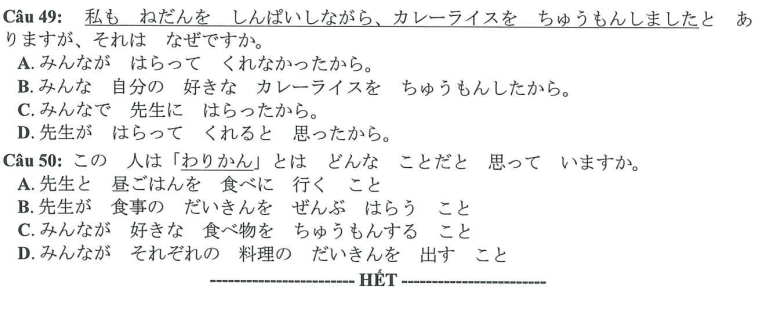 Câu 49: 私も ねだんを しんぱいしながら、カレーライスを ちゅうもんしましたと あ
りますが、それは なぜですか。
A. みんなが はらって くれなかったから。
B. みんな 自分の 好きな カレーライスを ちゅうもんしたから。
C. みんなで 先生に はらったから。
D. 先生が はらって くれると 思ったから。
Câu 50: この 人は「わりかん」とは どんな ことだと 思って いますか。
A. 先生と 昼ごはんを 食べに 行く こと
B. 先生が 食事の だいきんを ぜんぶ はらう こと
C. みんなが 好きな 食べ物を ちゅうもんする こと
D. みんなが それぞれの 料理の だいきんを 出す こと
------------------------ HẾT ------------------------